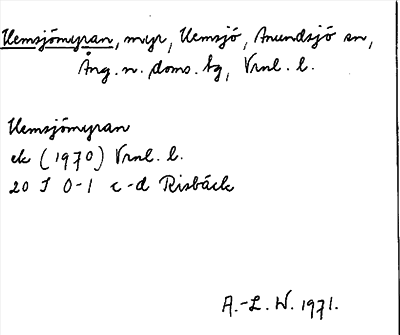 Hemsjömyran, myr, Hemsjö, Anundsjö sn,
Ång. n. doms. tg, Vrnl. l.
Hemsjömyran
ek (1970) Vrnl. l.
20 I 0-1 c-d Risbäck
A.-L. W. 1971.